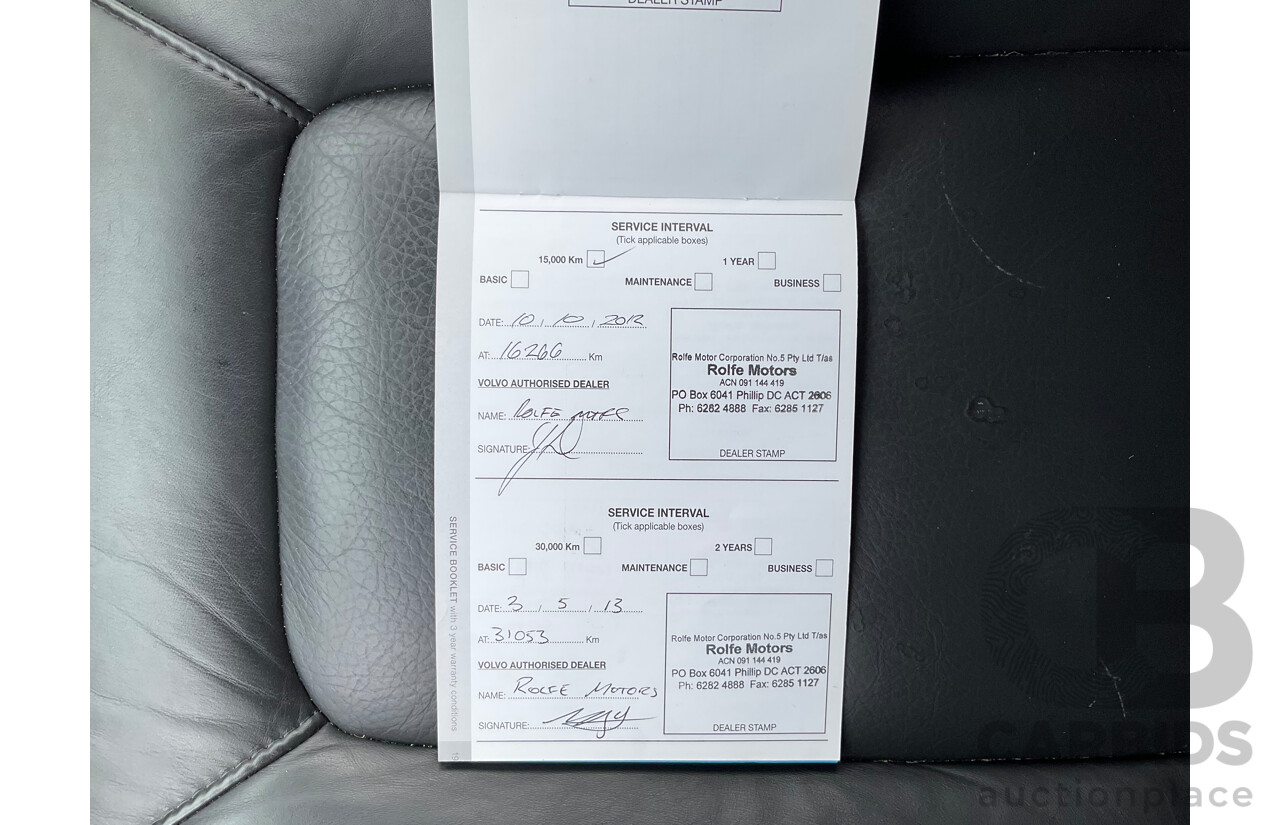 DEALER STAMP
SERVICE INTERVAL
(Tick applicable boxes)
15,000 Km 1 YEAR
BASIC MAINTENANCE BUSINESS
DATE: 10 / 10 / 2012
AT: 16266 Km
VOLVO AUTHORISED DEALER
NAME: ROLFE MTRS
SIGNATURE:
Rolfe Motor Corporation No.5 Pty Ltd T/as
Rolfe Motors
ACN 091 144 419
PO Box 6041 Phillip DC ACT 2606
Ph: 6282 4888 Fax: 6285 1127
DEALER STAMP
SERVICE INTERVAL
(Tick applicable boxes)
30,000 Km 2 YEARS
BASIC MAINTENANCE BUSINESS
DATE: 3 / 5 / 13
AT: 31053 Km
VOLVO AUTHORISED DEALER
NAME: ROLFE MOTORS
SIGNATURE:
Rolfe Motor Corporation No.5 Pty Ltd T/as
Rolfe Motors
ACN 091 144 419
PO Box 6041 Phillip DC ACT 2606
Ph: 6282 4888 Fax: 6285 1127
DEALER STAMP
SERVICE BOOKLET with 3 year warranty conditions
CB
CARBIDS
auctionplace